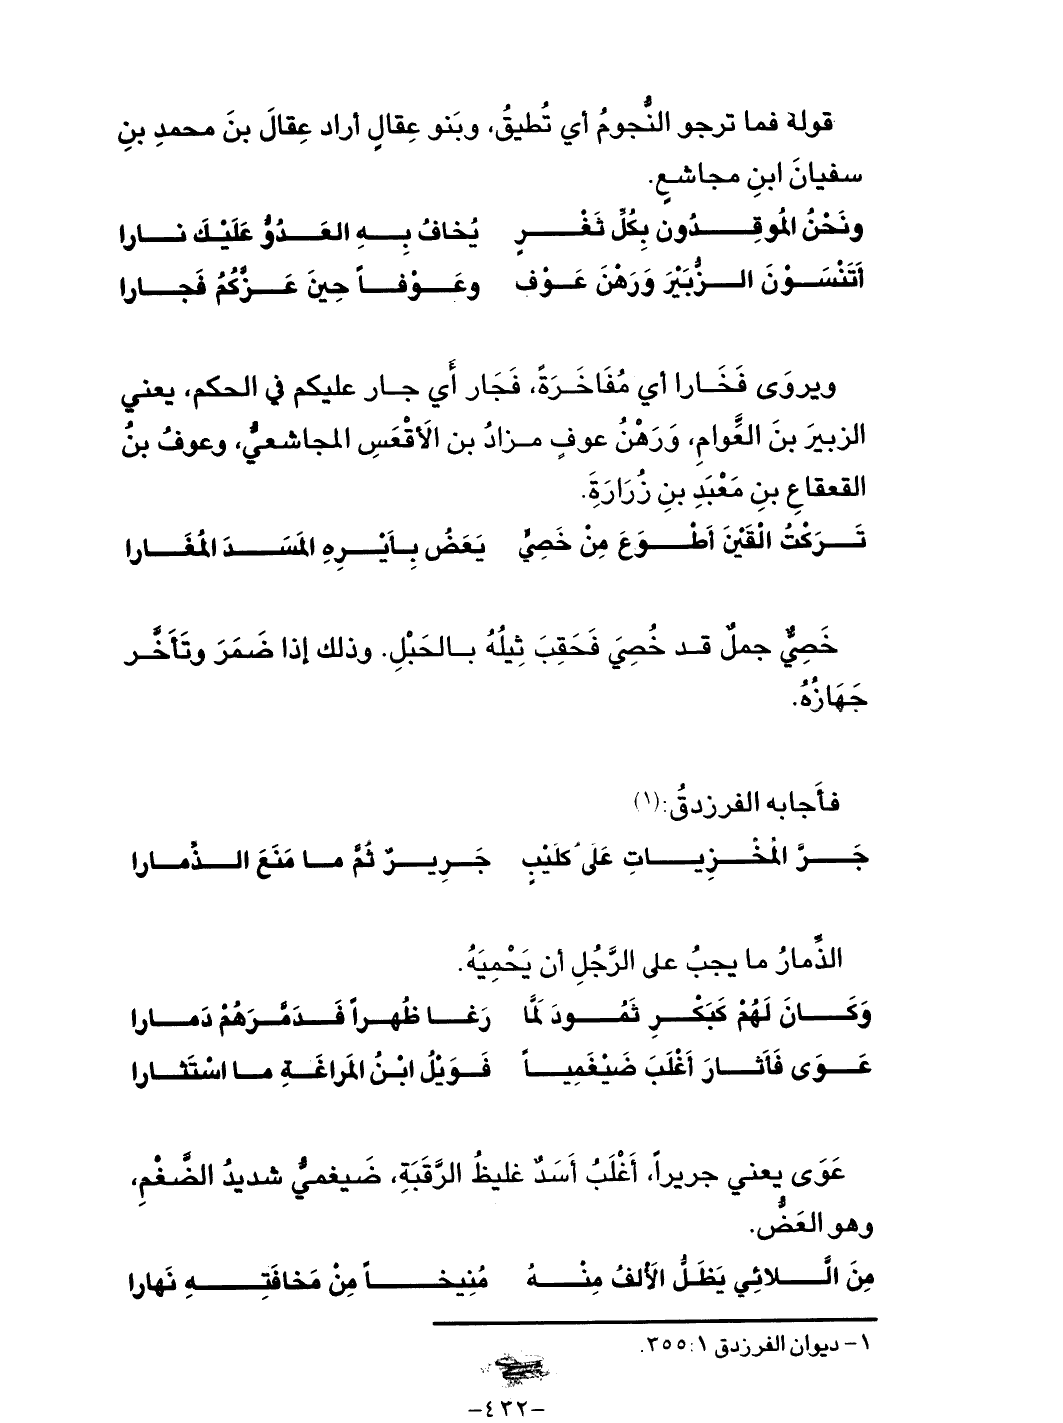 قولة فما ترجو النُّجومُ أي تُطيقُ، وبَنو عِقالٍ أراد عِقالَ بنَ محمدِ بنِ
سفيانَ ابنِ مجاشعٍ.
ونَحْنُ المُوقِدُون بِكُلِّ ثَغْرٍ يُخافُ بِهِ العَدُوُّ عَلَيْكَ نارا
أَتَنْسَوْنَ الزُّبَيْرَ وَرَهْنَ عَوْف وعَوْفاً حِينَ عَزَّكُمُ فَجارا
ويروَى فَخَارا أي مُفَاخَرَةً، فَجَار أَي جار عليكم في الحكم، يعني
الزبيرَ بنَ العَّوامِ، وَرَهْنُ عوفٍ مزادُ بن الَأقْعَسِ المجاشعيُّ، وعوفُ بنُ
القعقاعِ بنِ مَعْبَدِ بنِ زُرَارَةَ.
تَرَكْتُ الْقَيْنَ أَطْوَعَ مِنْ خَصِيٍّ يَعَضُ بِأَيْرِهِ المَسَدَ المُغَارا
خَصِيٌّ جملٌ قد خُصِيَ فَحَقِبَ ثِيلُهُ بالحَبْلِ. وذلك إذا ضَمَرَ وتَأَخَّر
جَهَازُهُ.
فأَجابه الفرزدقُ:(١)
جَرَّ المُخْزِياتِ عَلَى كُلَيْبٍ جَرِيرٌ ثُمَّ ما مَنَعَ الذِّمارا
الذِّمارُ ما يجبُ على الرَّجُلِ أن يَحْمِيَهُ.
وَكَانَ لَهُمْ كَبَكْرِ ثَمُودَ لَمَّا رَغا ظُهراً فَدَمَّرَهُمْ دَمارا
عَوَى فَأَثارَ أَغْلَبَ ضَيْغَمِياً فَوَيْلُ ابْنُ المَراغَةِ ما اسْتَثارا
عَوَى يعني جريراً، أَغْلَبُ أَسَدٌ غليظُ الرَّقَبَةِ، ضَيغميٌّ شديدُ الضَّغْمِ،
وهو العَضُّ.
مِنَ الَّلائِي يَظَلُّ الَألفُ مِنْهُ مُنِيخاً مِنْ مَخافَتِهِ نَهارا
١- ديوان الفرزدق ١:٣٥٥.
-٤٣٢-